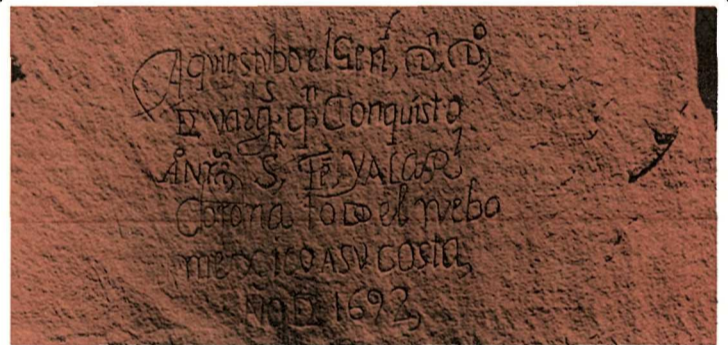 Aqui estubo el Genl, Dn Do
De Vargs, qn Conquisto
A Nra Sta Fe, Y A LA Rl
Corona todo el nuebo
mexico A SU costa,
Año De 1692,